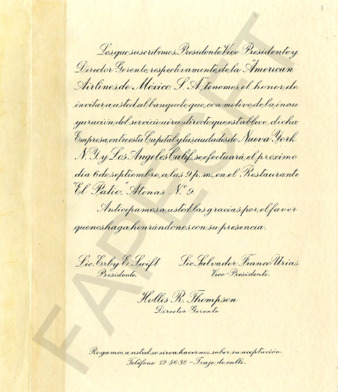 Los que suscribimos, Presidente, Vice-Presidente y
Director Gerente, respectivamente, de la American
Airlines de Mexico, S. A., tenemos el honor de
invitar a usted al banquete que, con motivo de la inau
guración del servicio aéreo directo que establece dicha
Empresa, entre esta Capital y las ciudades de Nueva York,
N. Y. y Los Angeles, Calif., se efectuará el próximo
día 6 de septiembre, a las 9 p. m., en el Restaurante
"El Patio", Atenas Nº 9.
Anticipamos a usted las gracias por el favor
que nos haga honrándonos con su presencia.
Lic. Erby E. Swift
Presidente.
Lic. Salvador Franco Urias
Vice-Presidente.
Hollis R. Thompson
Director Gerente
Rogamos a usted se sirva hacernos saber su aceptación.
Teléfono 12-56-35 - Traje de calle.
FAPECFT